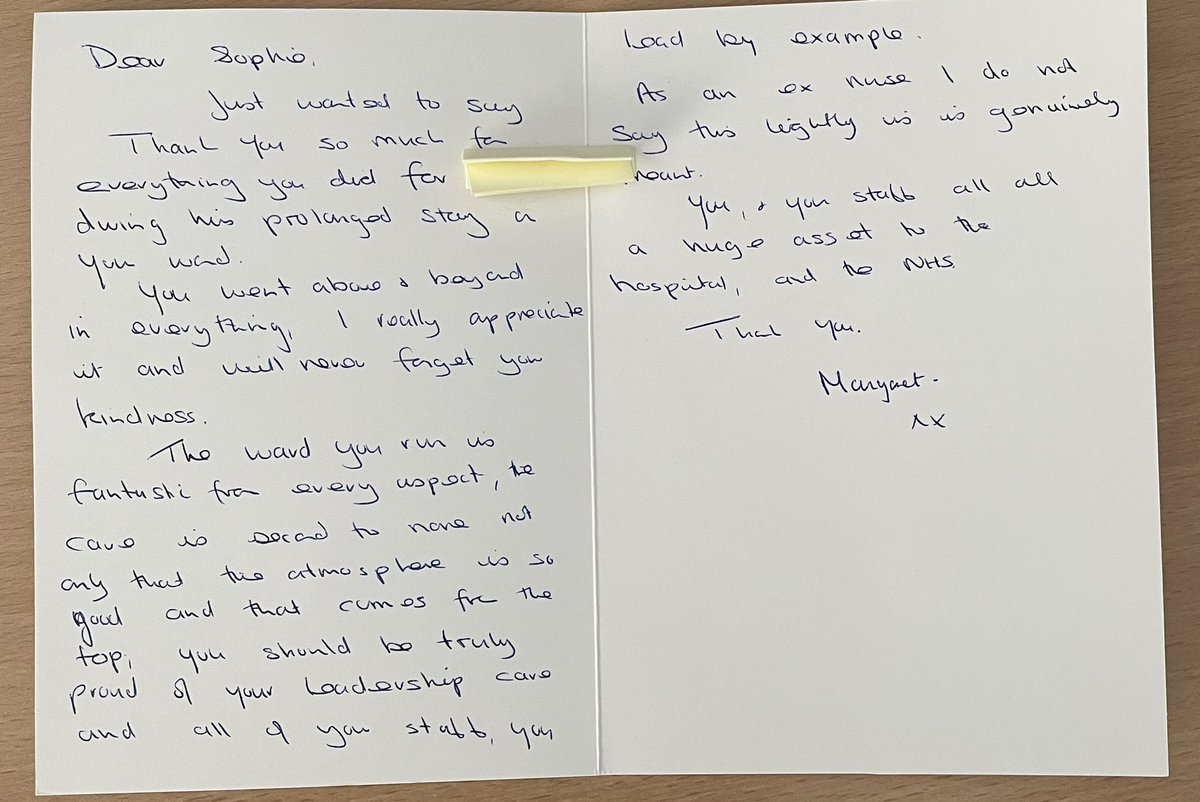 Dear Sophie,
Just wanted to say
Thank you so much for
everything you did for
during his prolonged stay on
your ward.
You went above & beyond
in everything, I really appreciate
it and will never forget your
kindness.
The ward you run is
fantastic from every aspect, the
care is second to none not
only that the atmosphere is so
good and that comes from the
top, you should be truly
proud of your leadership care
and all of your staff, you
Lead by example.
As an ex nurse I do not
Say this lightly is is genuinely
meant.
You, & your staff all all
a huge asset to the
hospital, and the NHS.
Thank you.
Margaret.
xx